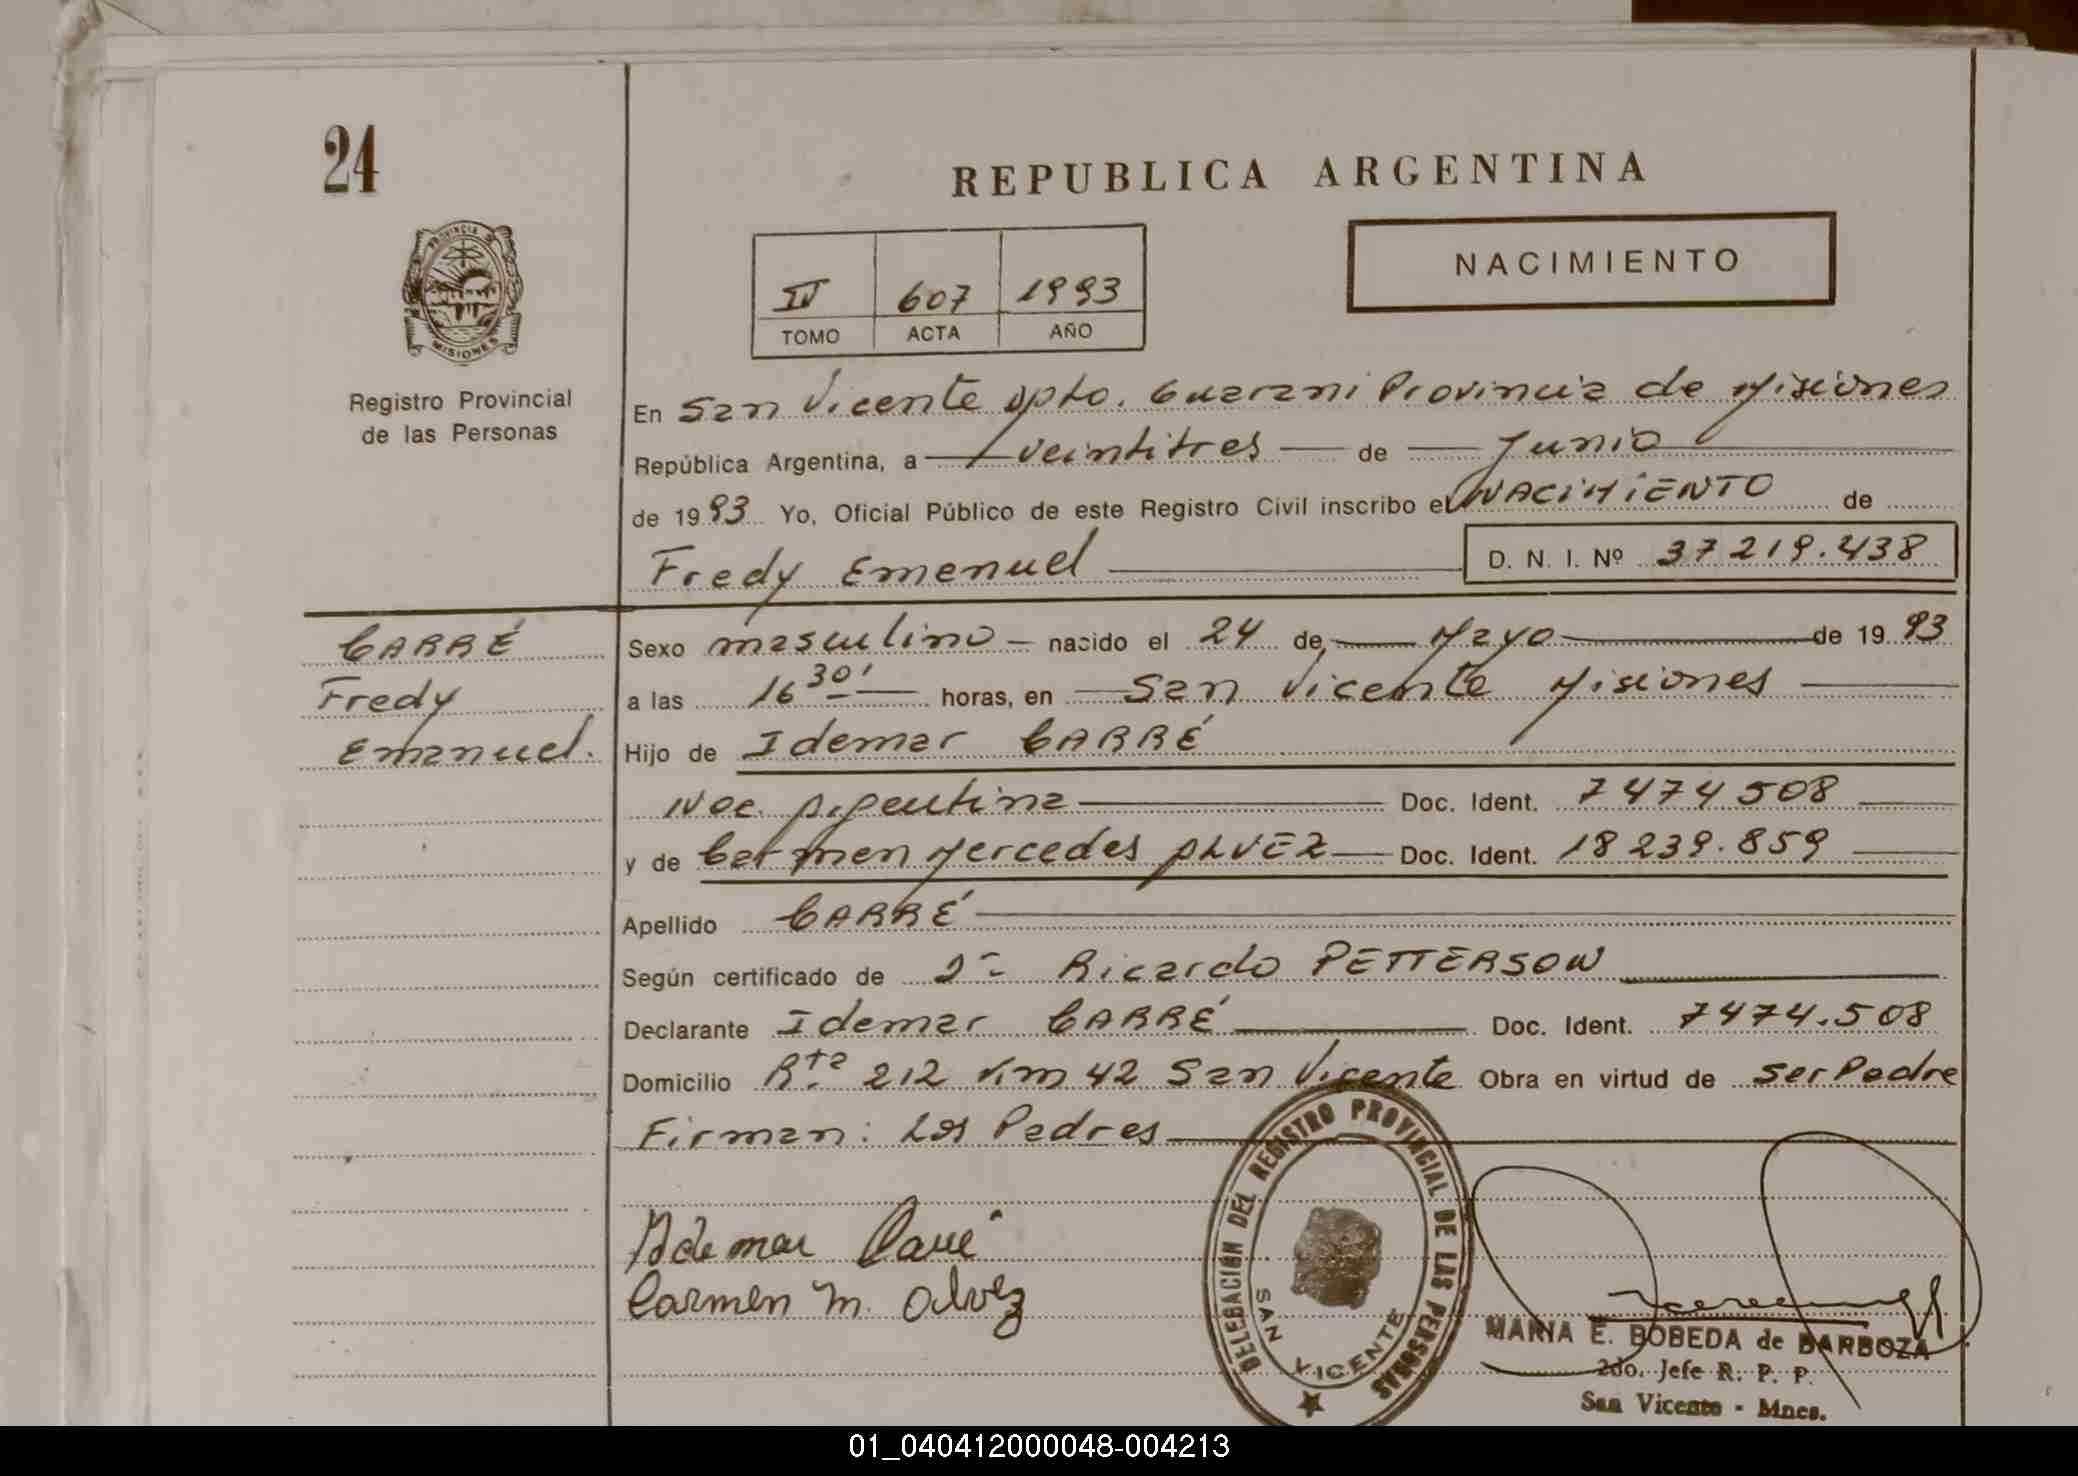 24
REPUBLICA ARGENTINA
PROVINCIA DE
MISIONES
Registro Provincial
de las Personas
IV 607 1993
TOMO ACTA AÑO
NACIMIENTO
En San Vicente Dpto. Guarani Provincia de Misiones
República Argentina, a veintitres de Junio
de 1993 Yo, Oficial Público de este Registro Civil inscribo el NACIMIENTO de
Fredy Emanuel D. N. I. Nº 37219.438
CARRÉ
Fredy
Emanuel.
Sexo masculino nacido el 24 de Mayo de 1993
a las 16 30' horas, en San Vicente Misiones
Hijo de Idemar CARRÉ
Nac. Argentina Doc. Ident. 7474508
y de Carmen Mercedes ALVEZ Doc. Ident. 18239.859
Apellido CARRÉ
Según certificado de Ricardo PETTERSON
Declarante Idemar CARRÉ Doc. Ident. 7474.508
Domicilio Rta 212 Km 42 San Vicente Obra en virtud de ser Padre
Firman: Los Padres
Idemar Carré
Carmen M. Alvez
DELEGACIÓN DEL REGISTRO PROVINCIAL DE LAS PERSONAS
SAN VICENTE
MARIA E. BOBEDA de BARBOZA
2do. Jefe R. P. P.
San Vicente - Mnes.
01_040412000048-004213